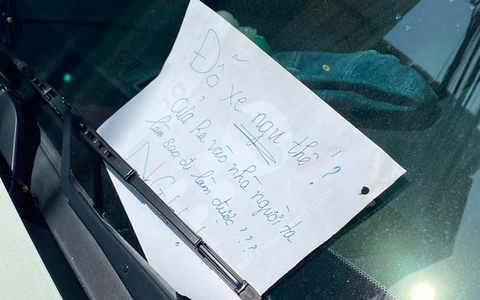 Đỗ xe ngu thế!?
Cửa ra vào nhà người ta
làm sao đi làm được???